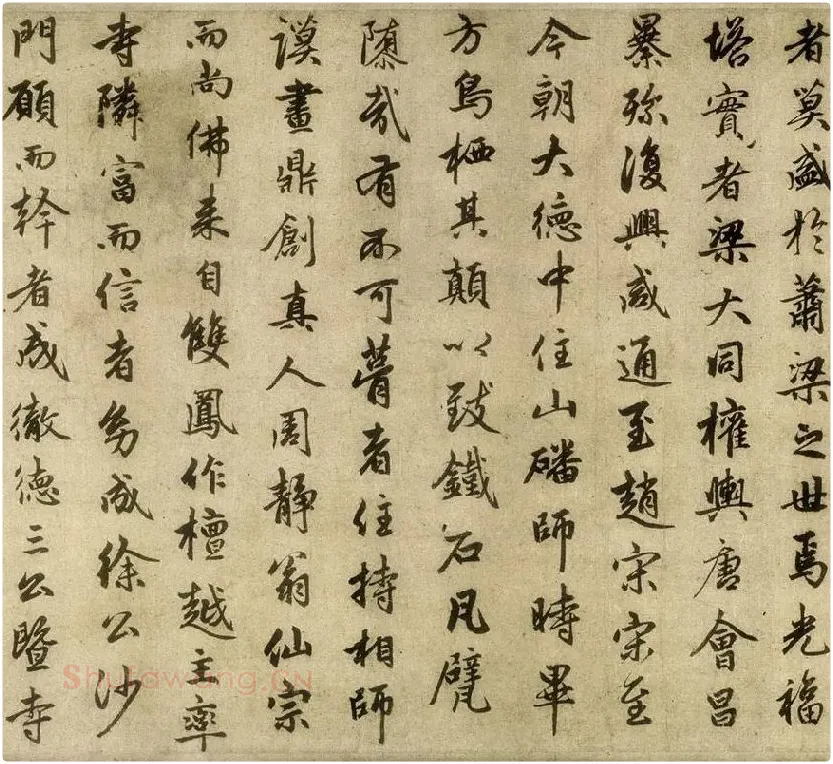 者莫盛於蕭梁之世焉光福
塔實者梁大同權輿唐會昌
暴殄復興咸通至趙宋宋至
今朝大德中住山磻師時畢
方鳥栖其顛以致鐵石凡甓
隳哉有不可瞢者住持相師
謨畫鼎創真人周靜翁仙宗
而尚佛来自雙鳳作檀越主率
寺隣富而信者成徐公沙
門願而幹者成徹德三公暨寺
Shufawang.CN